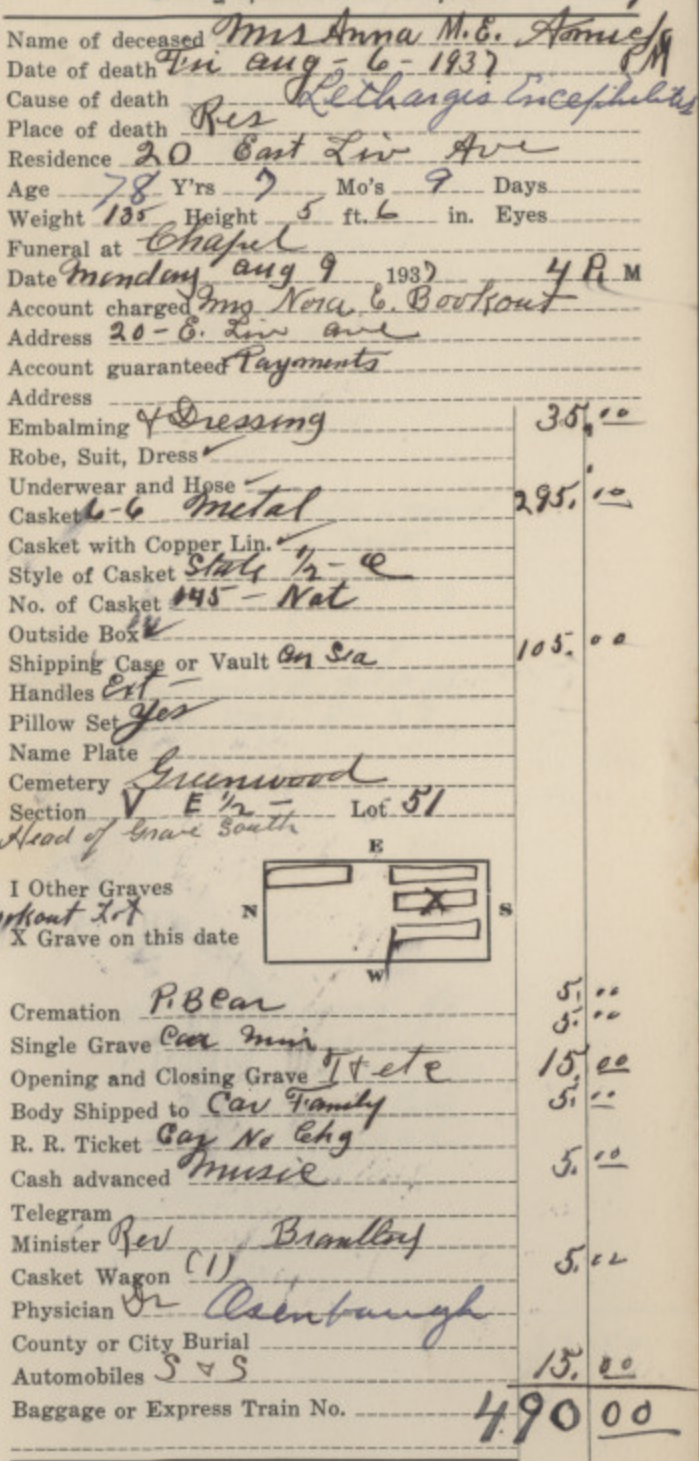 Name of deceased Mrs Anna M. E.
Date of death Fri Aug - 6 - 1937 PM
Cause of death Lethargis Encephilites
Place of death Res
Residence 20 East Liv Ave
Age 78 Y'rs 7 Mo's 9 Days
Weight 135 Height 5 ft. 6 in. Eyes
Funeral at Chapel
Date Monday Aug 9 1937 4 P. M
Account charged Mrs Nora E. Bookout
Address 20 - E. Liv Ave
Account guaranteed Payments
Address
Embalming & Dressing 35.00
Robe, Suit, Dress ✓
Underwear and Hose ✓
Casket 6-6 Metal 295.00
Casket with Copper Lin. ✓
Style of Casket State 1/2 -
No. of Casket 145 - Nat
Outside Box
Shipping Case or Vault 105.00
Handles Ext -
Pillow Set Yes
Name Plate
Cemetery Greenwood
Section V E 1/2 - Lot 51
Head of Grave South
E
I Other Graves
N S
ookout Lot
X Grave on this date
X
W
Cremation P. B Car 5.00
5.00
Single Grave Car Min
Opening and Closing Grave T & etc 15.00
Body Shipped to Car Family 5.00
R. R. Ticket Car No Chg
Cash advanced Music 5.00
Telegram
Minister Rev
Casket Wagon (1) 5.00
Physician Dr Osenbaugh
County or City Burial
Automobiles S & S 15.00
Baggage or Express Train No. 490 00